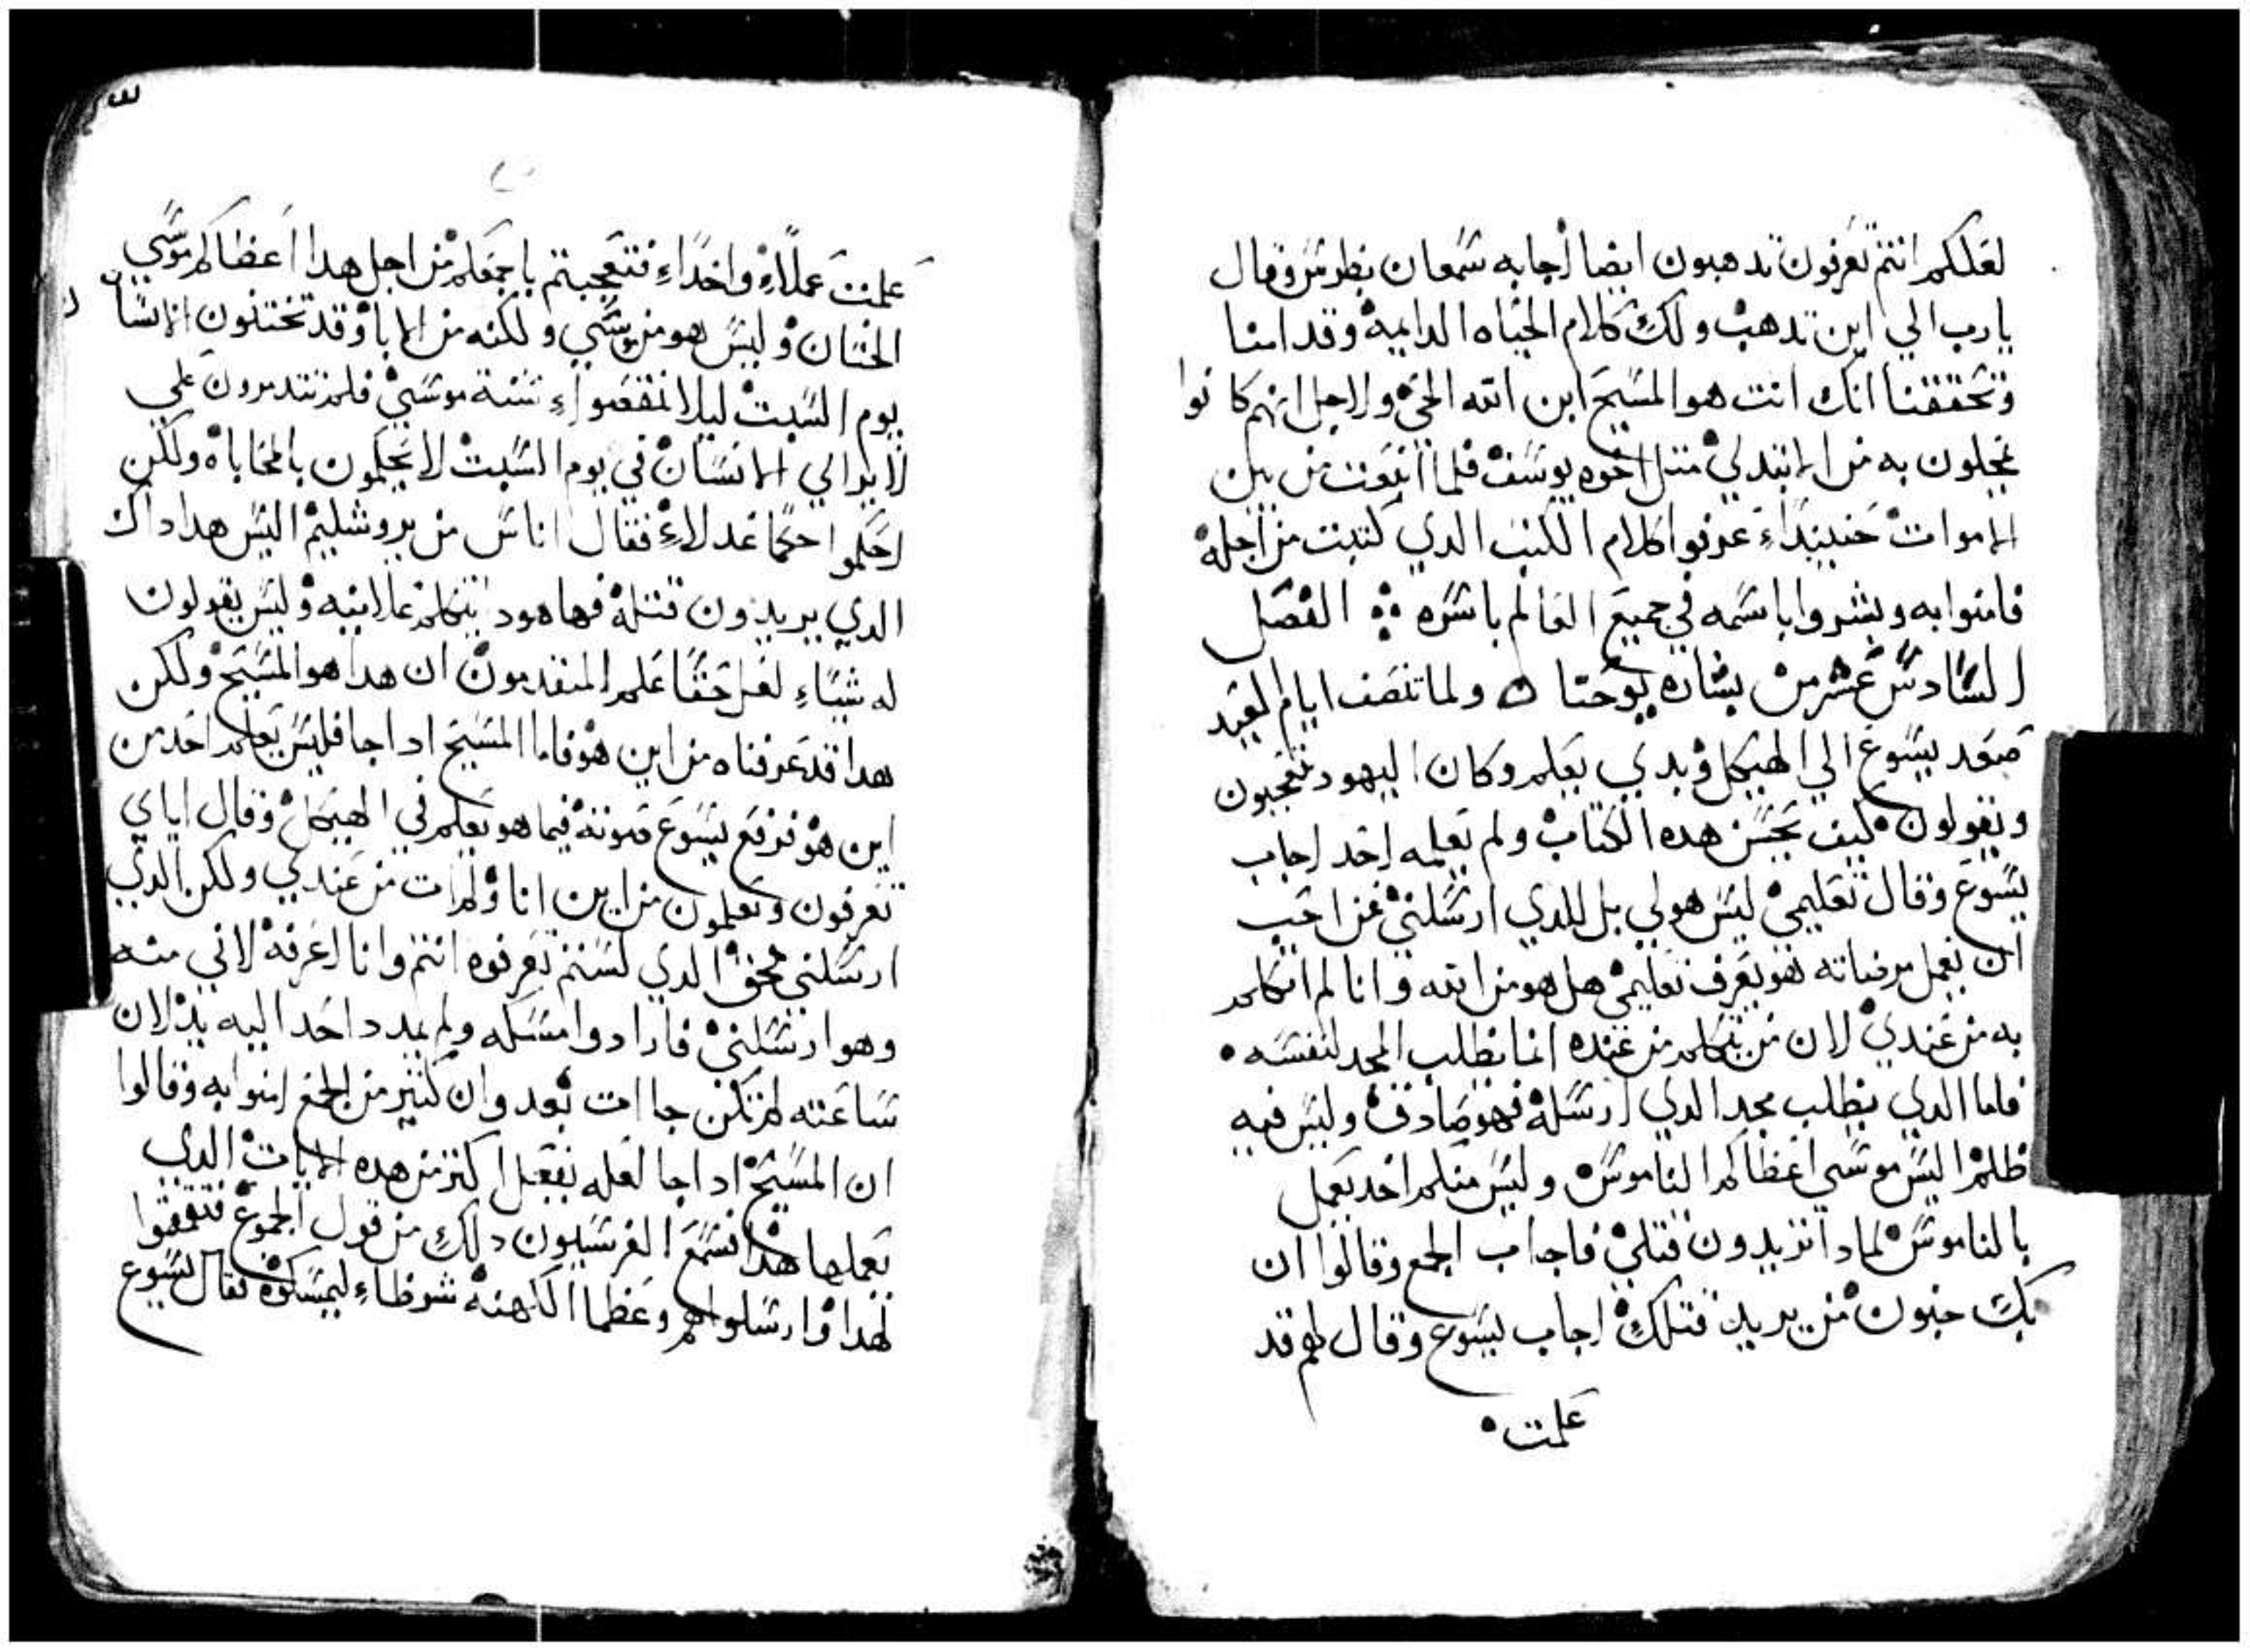 لعلكم انتم تعرفون تدهبون ايضا اجابه سمعان بطرس وقال
يارب الي اين تدهب ولك كلام الحياه الدايمه وقد امنا
وتحققنا انك انت هو المسيح ابن الله الحي ولاجل انهم كانوا
يجلون به من الابتدي متل اخوه يوسف فلما انبعت من بين
الاموات حينيداء عرفوا كلام الكتب الدي كتبت من اجله
فامنوا به وبشروا باسمه في جميع العالم باسره الفصل
السادس عشر من بشاره يوحنا ولما تنصف ايام العيد
صعد يسوع الي الهيكل وبدي يعلم وكان اليهود يتعجبون
ويقولون كيف يحسن هده الكتاب ولم يعلمه احد اجاب
يسوع وقال تعليمي ليس هو لي بل للدي ارسلني فمن احب
ان يعمل مرضاته فهو يعرف تعليمي هل هو من الله وانا لم اتكلم
به من عندي لان من يتكلم من عنده انما يطلب المجد لنفسه
فاما الدي يطلب مجد الدي ارسله فهو صادق وليس فيه
ظلم اليس موسي اعطاكم الناموس وليس منكم احد يعمل
بالناموس لمادا تريدون قتلي فاجاب الجمع وقالوا ان
بك جنون من يريد قتلك اجاب يسوع وقال لهم قد
علمت
علمت عملاء واحداء فتعجبتم باجمعكم من اجل هدا اعطاكم موسي
الختان وليس هو من موسي ولكنه من الابا وقد تختنون الانسان
يوم السبت ليلا تنقضواء سنة موسي فلم تتدمرون علي
لابراي الانسان في يوم السبت لا تحكمون بالمحاباه ولكن
احكموا حكما عدلاء فقال اناس من يروشليم اليس هدا داك
الدي يريدون قتله فها هودا يتكلم علانيه وليس يقولون
له شيياء لعل حقا علم المتقدمون ان هدا هو المسيح ولكن
هدا قد عرفناه من اين هو فاما المسيح ادا جا فليس يعلم احد من
اين هو فرفع يسوع صوته فيما هو يعلم في الهيكل وقال اياي
تعرفون وتعلمون من اين انا ولم ات من عندي ولكن الدي
ارسلني محق الدي لستم تعرفوه انتم وانا اعرفه لاني منه
وهو ارسلني فارادوا مسكه ولم يمدد احد اليه يد لان
ساعته لم تكن جاات بعد وان كتير من الجمع امنوا به وقالوا
ان المسيح ادا جا لعله يفعل اكتر من هده الايات الدي
يعملها هدا فسمع الفرسيون دلك من قول الجموع فتقمقوا
لهدا وارسلوا هم وعظما الكهنه شرطاء ليمسكوه فقال يسوع